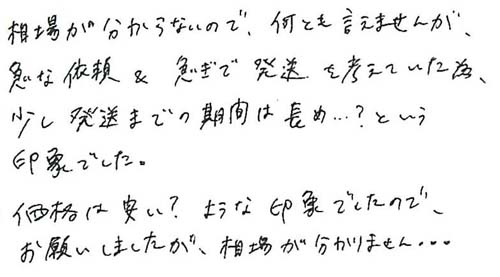 相場が分からないので、何とも言えませんが、
急な依頼 & 急ぎで 発送 を考えていた為、
少し 発送までの期間は長め…?という
印象でした。
価格は安い? ような印象でしたので、
お願いしましたが、相場が分かりません...